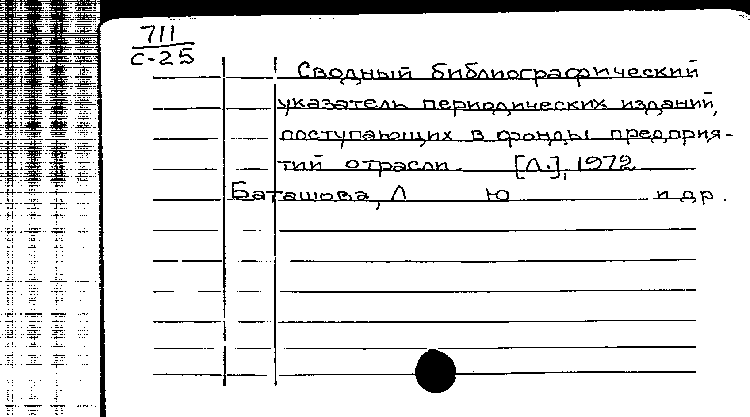 711
С-25
Сводный библиографический
указатель периодических изданий,
поступающих в фонды предприя-
тий отрасли. [Л.], 1972
Баташова, Л Ю и др.